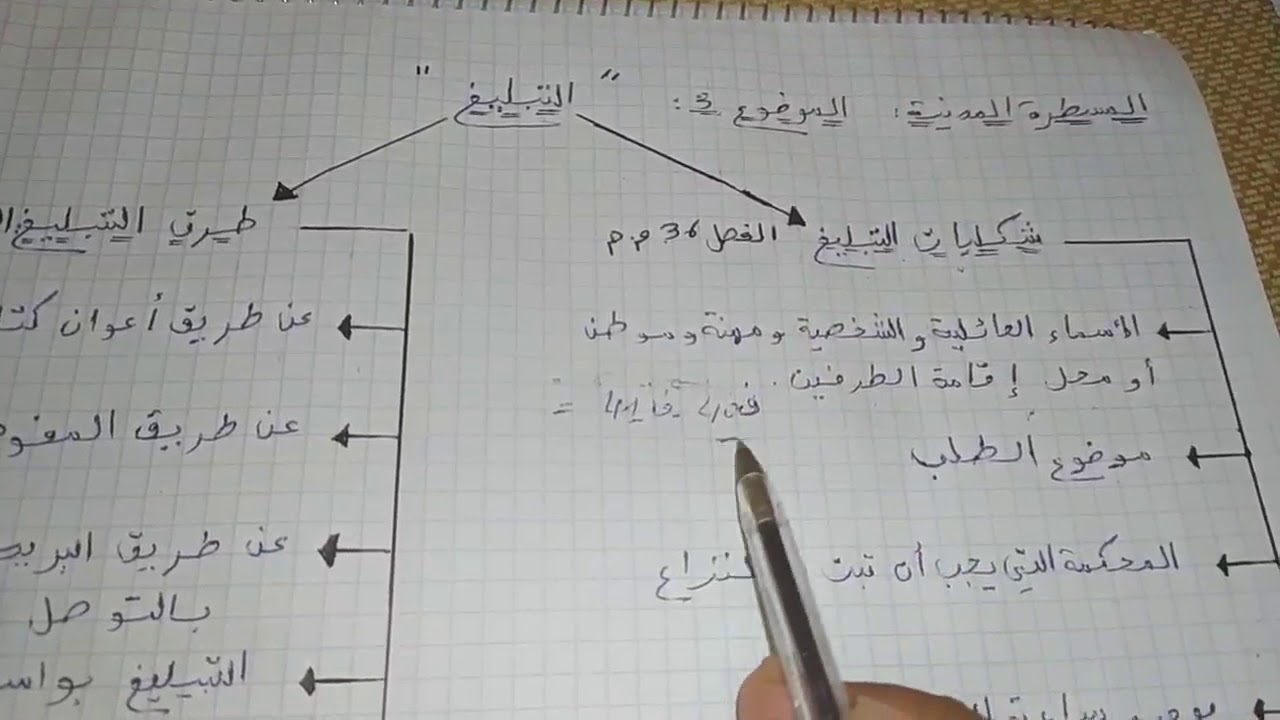 المسطرة المدنية: الموضوع 3: "التبليغ"
شكليات التبليغ الفصل 36 م.م
الأسماء العائلية والشخصية ومهنة وموطن
أو محل إقامة الطرفين.
موضوع الطلب
المحكمة التي يجب أن تبت
طرق التبليغ
عن طريق أعوان
عن طريق
عن طريق البريد
بالتوصل
التبليغ